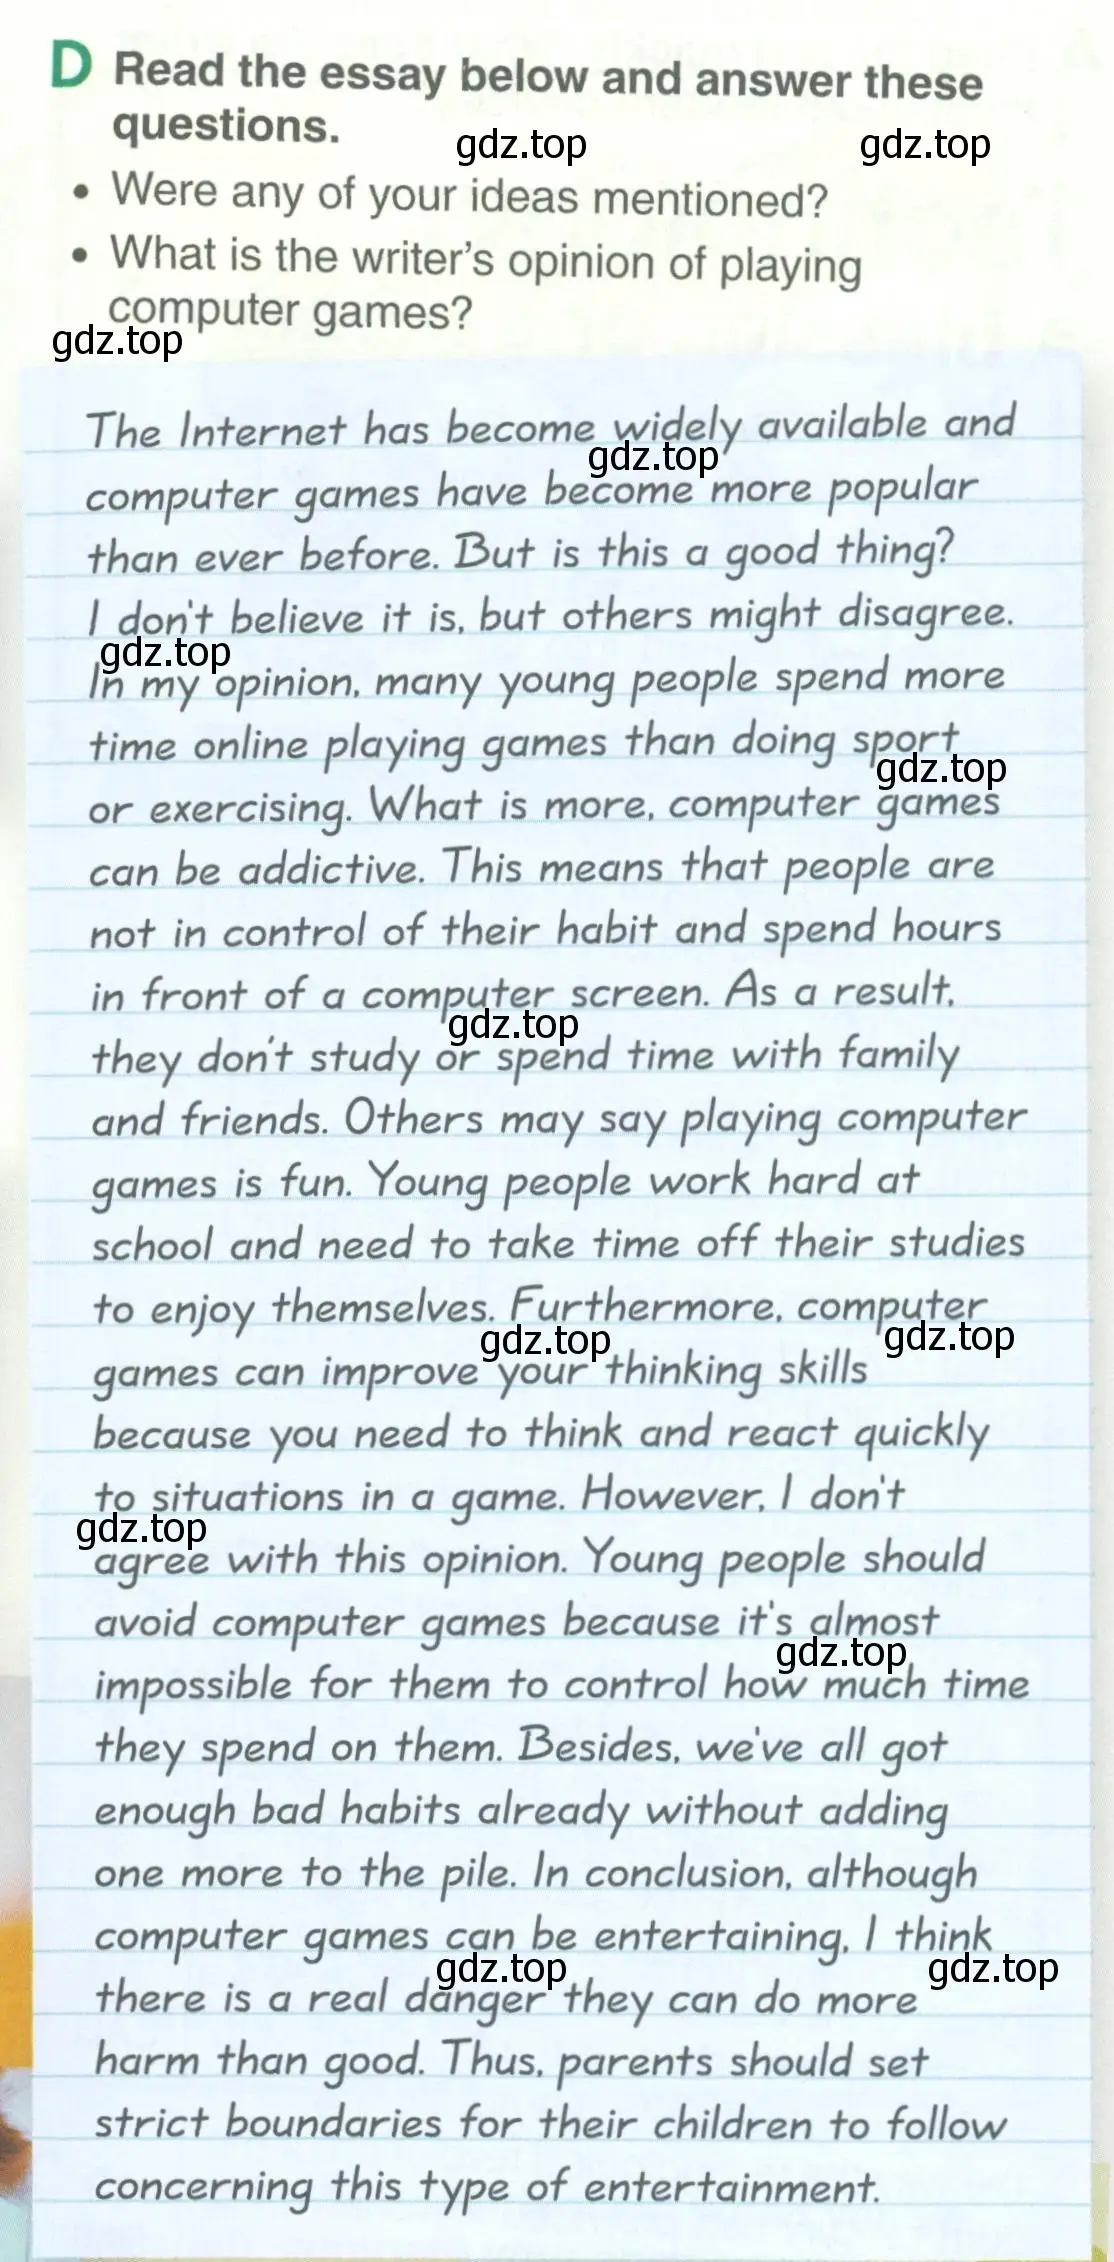 D Read the essay below and answer these
questions.
gdz.top
gdz.top
• Were any of your ideas mentioned?
• What is the writer's opinion of playing
computer games?
gdz.top
The Internet has become widely available and
gdz.top
computer games have become more popular
than ever before. But is this a good thing?
I don't believe it is, but others might disagree.
gdz.top
In my opinion, many young people spend more
time online playing games than doing sport
gdz.top
or exercising. What is more, computer games
can be addictive. This means that people are
not in control of their habit and spend hours
in front of a computer screen. As a result,
gdz.top
they don't study or spend time with family
and friends. Others may say playing computer
games is fun. Young people work hard at
school and need to take time off their studies
to enjoy themselves. Furthermore, computer
gdz.top
gdz.top
games can improve your thinking skills
because you need to think and react quickly
to situations in a game. However, I don't
gdz.top
agree with this opinion. Young people should
avoid computer games because it's almost
gdz.top
impossible for them to control how much time
they spend on them. Besides, we've all got
enough bad habits already without adding
one more to the pile. In conclusion, although
computer games can be entertaining, I think
gdz.top
gdz.top
there is a real danger they can do more
harm than good. Thus, parents should set
strict boundaries for their children to follow
concerning this type of entertainment.